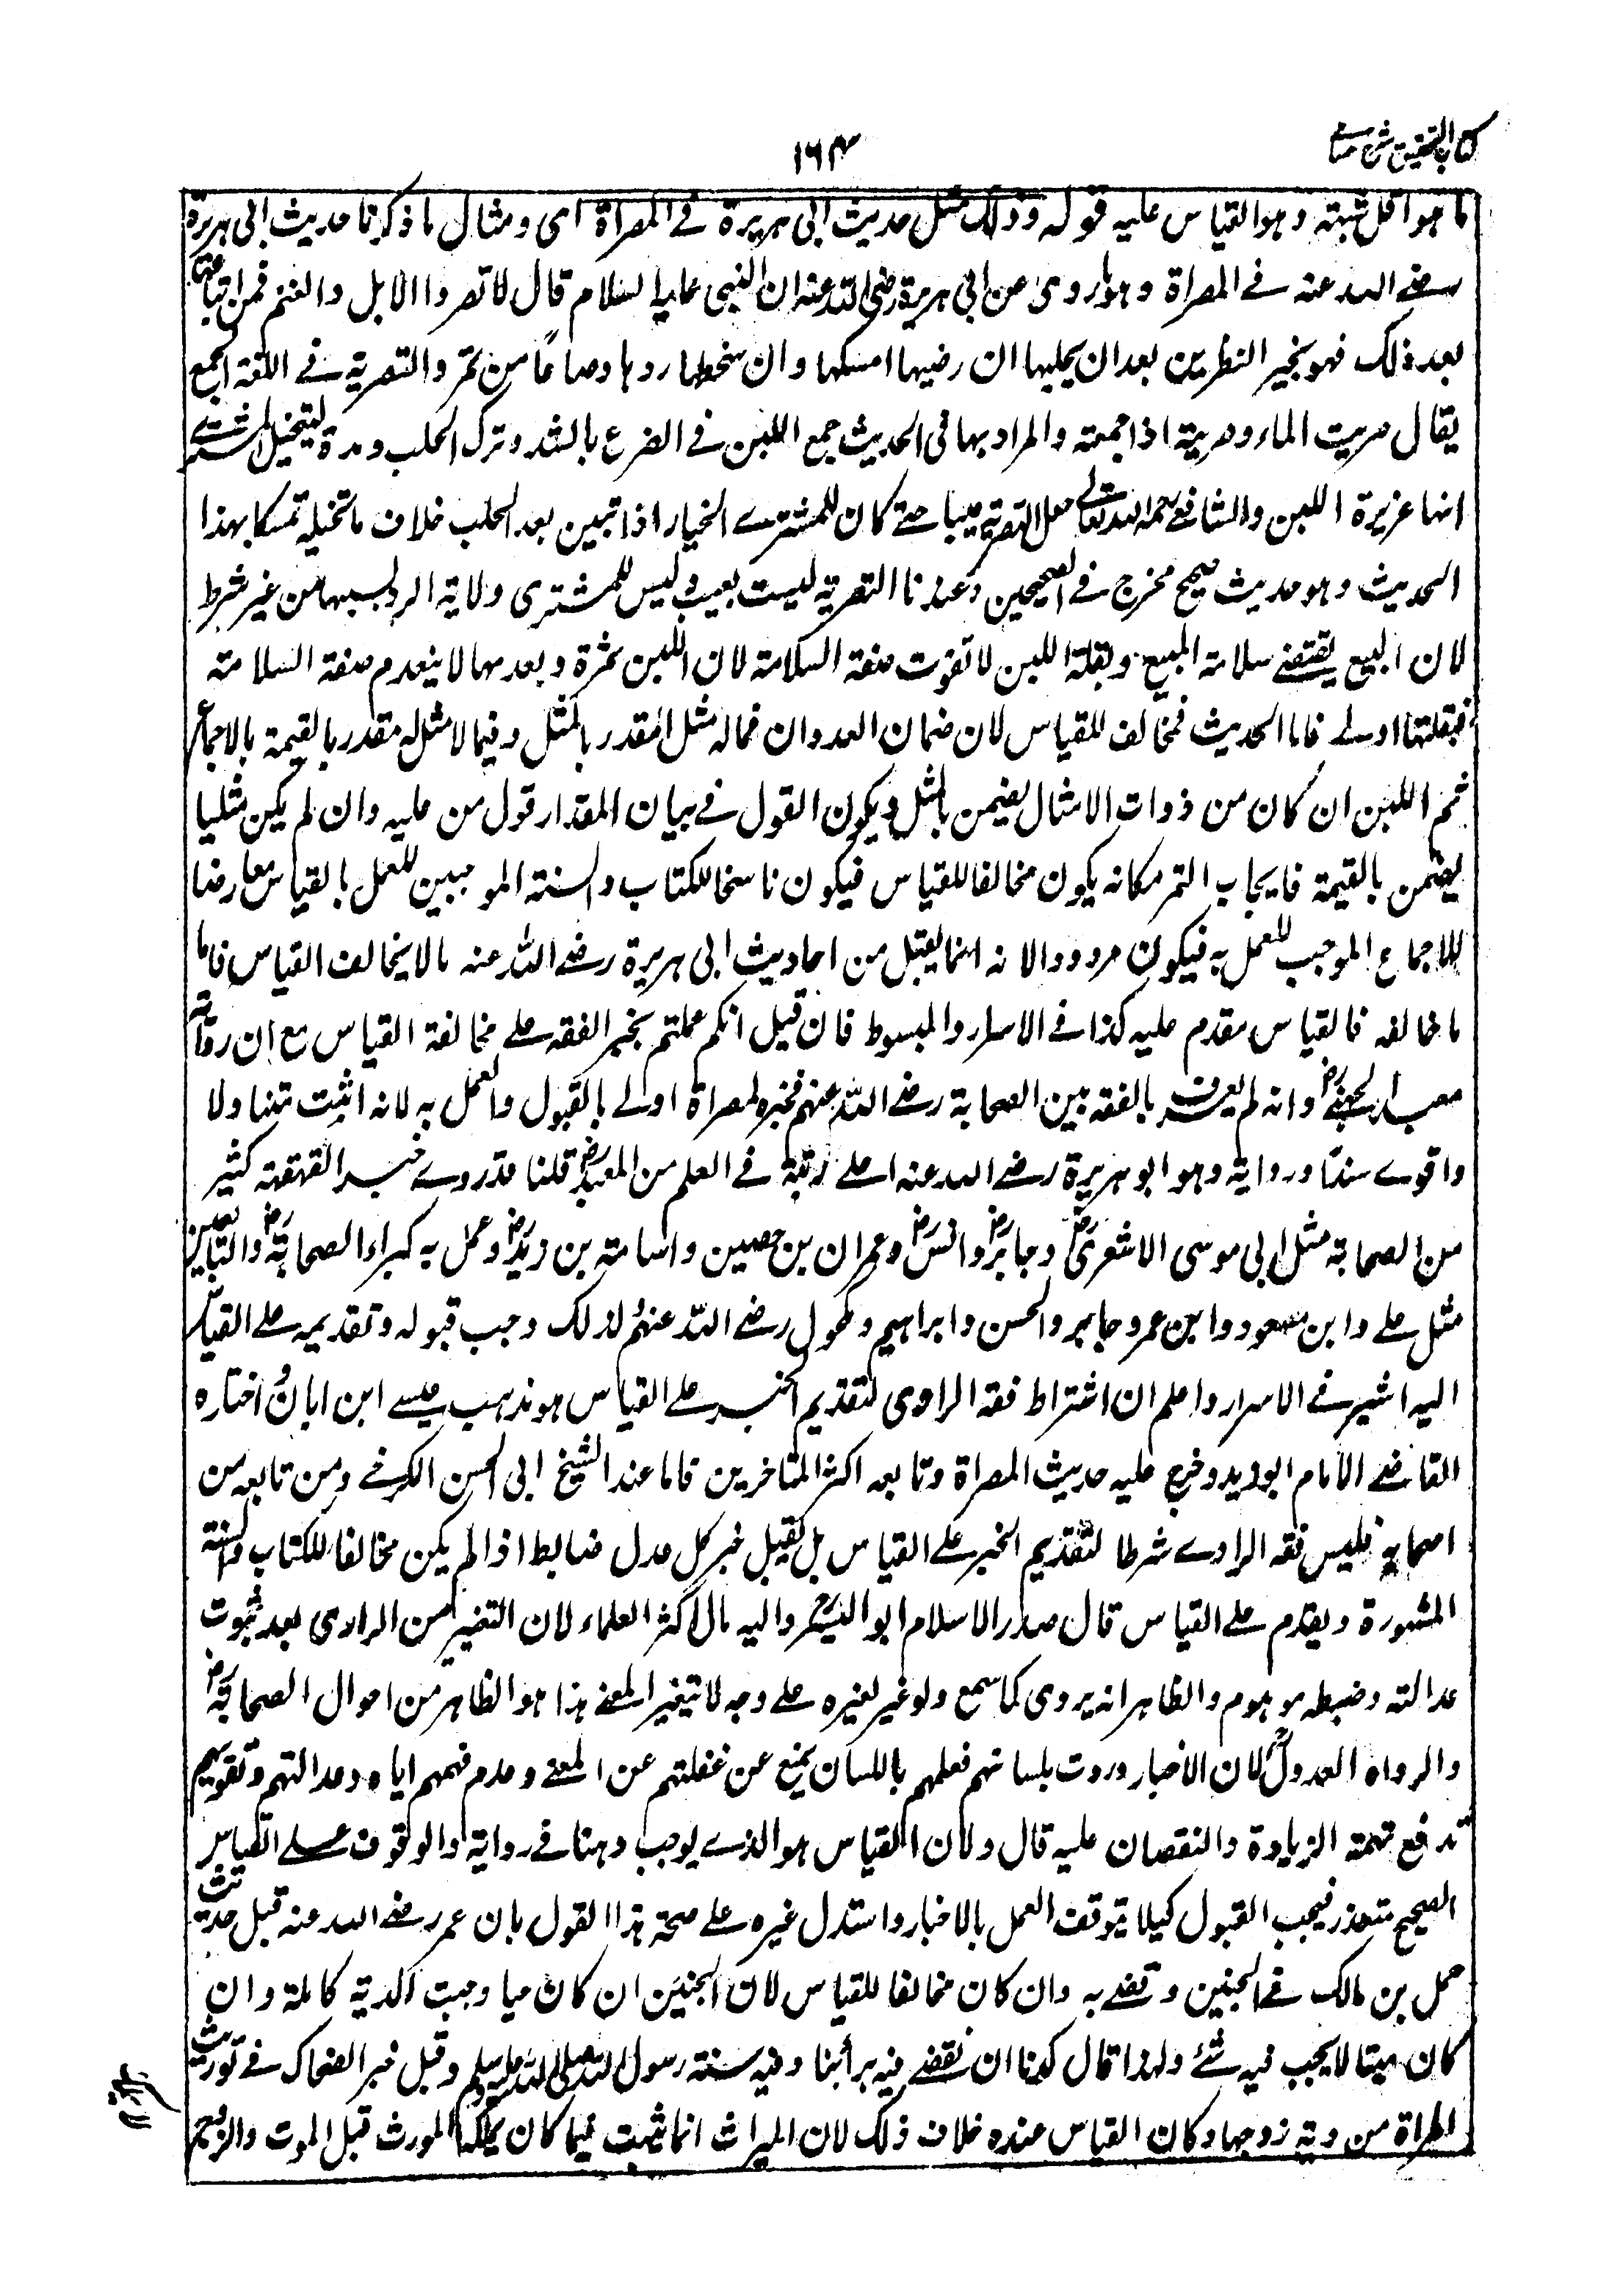 كتاب التحقيق شرح حسامي
١٦٤
ما هو اقل شبهة وهو القياس عليه قوله وذلك مثل حديث ابي هريرة في المصراة اى ومثال ما ذكرنا حديث ابى هريرة
رضي الله عنه في المصراة وهو ما روى عن ابى هريرة رضى الله عنه ان النبى عليه السلام قال لا تصروا الابل والغنم فمن ابتاعها
بعد ذلك فهو بخير النظرين بعد ان يحلبها ان رضيها امسكها وان سخطها ردها وصاعًا من تمر والتصرية في اللغة الجمع
يقال صريت الماء وصريته اذا جمعته والمراد بها فى الحديث جمع اللبن في الضرع بالشد وترك الحلب مدة ليتخيل المشتري
انها غزيرة اللبن والشافعي رحمه الله تعالى جعل التصرية عيبا حتى كان للمشتري الخيار اذا تبين بعد الحلب خلاف ما تخيله تمسكا بهذا
الحديث وهو حديث صحيح مخرج في الصحيحين وعندنا التصرية ليست بعيب وليس للمشترى ولاية الرد بسببها من غير شرط
لان البيع يقتضي سلامة المبيع وبقلة اللبن لا تفوت صفة السلامة لان اللبن ثمرة وبعدمها لا ينعدم صفة السلامة
فبقلتها اولى فاما الحديث فمخالف للقياس لان ضمان العدوان فيما له مثل مقدر بالمثل وفيما لا مثل له مقدر بالقيمة بالاجماع
ثم اللبن ان كان من ذوات الامثال يضمن بالمثل ويكون القول في بيان المقدار قول من عليه وان لم يكن مثليا
يضمن بالقيمة فايجاب التمر مكانه يكون مخالفا للقياس فيكون ناسخا للكتاب والسنة الموجبين للعمل بالقياس معارضا
للاجماع الموجب للعمل به فيكون مردودا لانه انما يقبل من احاديث ابى هريرة رضي الله عنه ما لا يخالف القياس فاما
ما خالفه فالقياس مقدم عليه كذا في الاسرار والمبسوط فان قيل انكم عملتم بخبر القهقهة على مخالفة القياس مع ان راويه
معبد الجهني رض وانه لم يعرف بالفقه بين الصحابة رضي الله عنهم فخبر المصراة اولى بالقبول والعمل به لانه اثبت متنا ولا
واقوى سندًا ورواية وهو ابو هريرة رضي الله عنه اعلى رتبة في العلم من المعبد رض قلنا قد روى خبر القهقهة كثير
من الصحابة مثل ابى موسى الاشعرى رض وجابر رض وانس رض وعمران بن حصين واسامة بن زيد رض وعمل به كبراء الصحابة رض والتابعين
مثل على وابن مسعود وابن عمر وجابر والحسن وابراهيم ومكحول رضي الله عنهم لذلك وجب قبوله وتقديمه على القياس
اليه اشير في الاسرار واعلم ان اشتراط فقه الراوى لتقديم الخبر على القياس هو مذهب عيسى ابن ابان واختاره
القاضي الامام ابو زيد وخرج عليه حديث المصراة وتابعه اكثر المتاخرين فاما عند الشيخ ابى الحسن الكرخي ومن تابعه من
اصحابنا فليس فقه الراوي شرطا لتقديم الخبر على القياس بل يقبل خبر كل عدل ضابط اذا لم يكن مخالفا للكتاب والسنة
المشهورة ويقدم على القياس قال صدر الاسلام ابو اليسر رح واليه مال اكثر العلماء لان التغيير من الراوى بعد ثبوت
عدالته وضبطه موهوم والظاهر انه يروى كما سمع ولو غير لغيره على وجه لا يتغير المعنى هذا هو الظاهر من احوال الصحابة رض
والرواة العدول لان الاخبار وردت بلسانهم فعلمهم باللسان يمنع عن غفلتهم عن المعنى وعدم فهمهم اياه وعدالتهم وتقويهم
تدفع تهمة الزيادة والنقصان عليه قال ولان القياس هو الذي يوجب وهنا في رواية والوقوف على القياس
الصحيح متعذر فيجب القبول كيلا يتوقف العمل بالاخبار واستدل غيره على صحة هذا القول بان عمر رضي الله عنه قبل حديث
حمل بن مالك في الجنين وقضى به وان كان مخالفا للقياس لان الجنين ان كان حيا وجبت الدية كاملة وان
كان ميتا لا يجب فيه شئ ولهذا قال كدنا ان نقضي فيه برأينا وفيه سنة رسول الله صلى الله عليه وسلم وقبل خبر الضحاك في توريث
المرأة من دية زوجها وكان القياس عنده خلاف ذلك لان الميراث انما يثبت فيما كان يملكه المورث قبل الموت والزوج